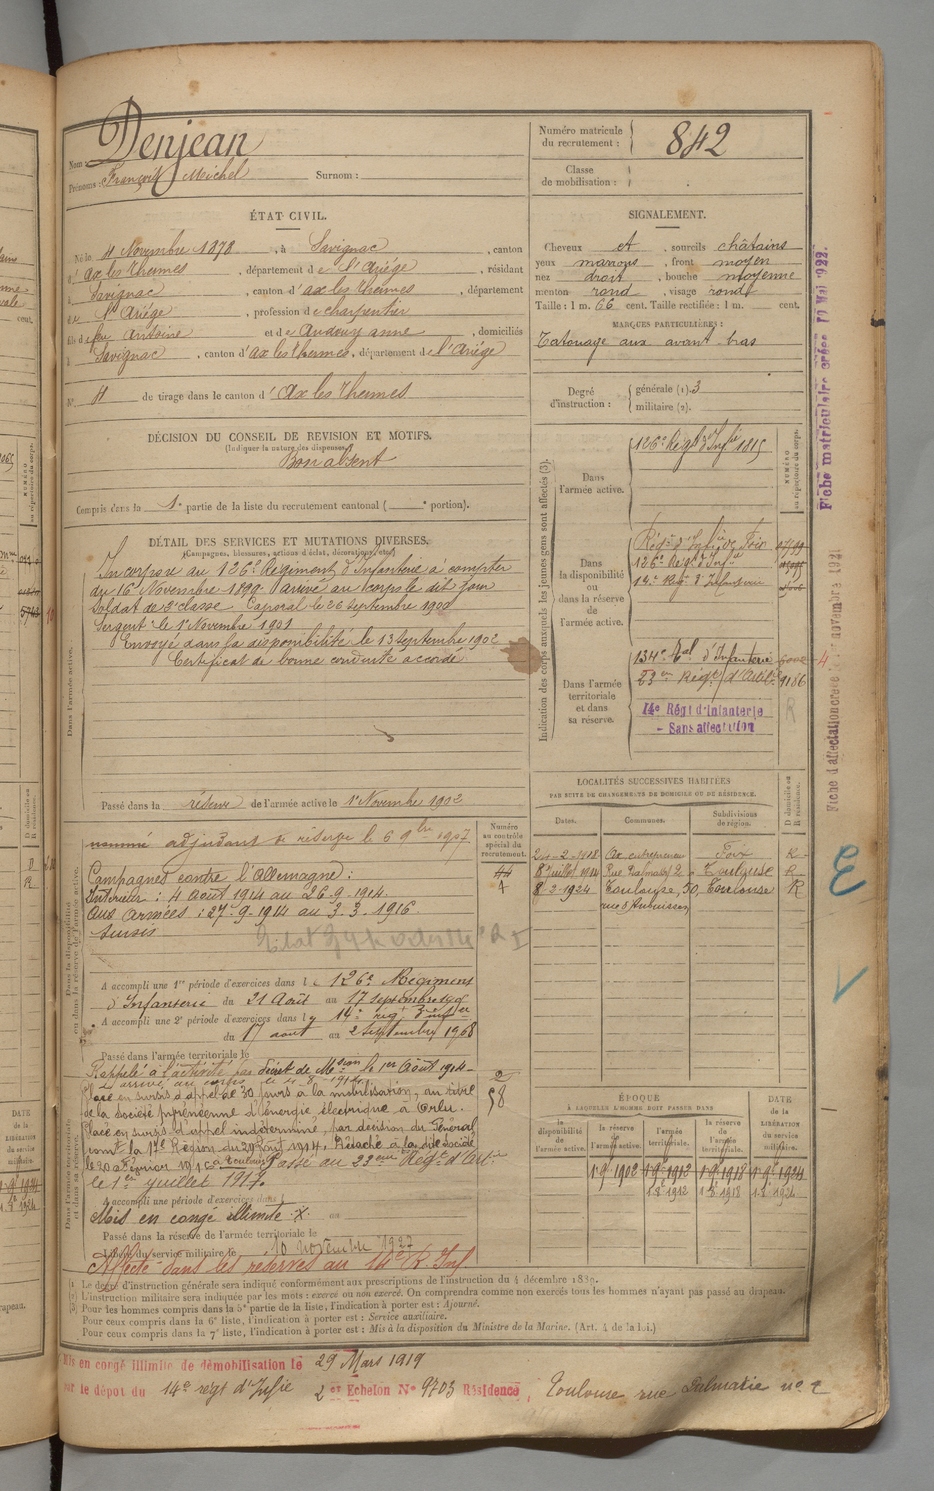 Nom : Denjean
Prénoms : François Michel Surnom :
Numéro matricule du recrutement : 842
Classe de mobilisation :
ÉTAT CIVIL.
Né le 4 Novembre 1878, à Savignac, canton
d'Ax les Thermes, département de l'Ariége, résidant
à Savignac, canton d'ax les thermes, département
de l'Ariége, profession de charpentier
fils de feu Antoine et de Audouy anne, domiciliés
à Savignac, canton d'ax les thermes, département de l'Ariége
N° 4 de tirage dans le canton d'Ax les Thermes
SIGNALEMENT.
Cheveux et, sourcils châtains
yeux marrons, front moyen
nez droit, bouche moyenne
menton rond, visage rond
Taille : 1 m. 66 cent. Taille rectifiée : 1 m. cent.
MARQUES PARTICULIÈRES :
Tatouage aux avant bras
Degré d'instruction : générale (1). 3
militaire (2).
DÉCISION DU CONSEIL DE REVISION ET MOTIFS.
(Indiquer la nature des dispenses)
Bon absent
Compris dans la 1e partie de la liste du recrutement cantonal ( e portion).
DÉTAIL DES SERVICES ET MUTATIONS DIVERSES.
(Campagnes, blessures, actions d'éclat, décorations, etc.)
Incorporé au 126e Régiment d'Infanterie à compter
du 16 Novembre 1899. arrivé au corps le dit jour
Soldat de 2e classe Caporal le 26 Septembre 1900
Sergent le 1er Novembre 1901
Envoyé dans la disponibilité le 13 Septembre 1902
Certificat de bonne conduite accordé
Dans l'armée active.
Passé dans la réserve de l'armée active le 1er Novembre 1902
Indication des corps auxquels les jeunes gens sont affectés (3).
NUMÉRO au répertoire du corps.
Dans l'armée active.
126e Régt d'Infie 1815
Dans la disponibilité ou dans la réserve de l'armée active.
Régt d'Infie de Foix
126e Régt d'Infie
14e Reg. d'Infanterie
Dans l'armée territoriale et dans sa réserve.
134e Tal d'Infanterie
23eme Régt d'Artie 1186
14e Régt d'Infanterie
- Sans affectation
R
Fiche matriculaire créée 10 Mai 1922
Fiche d'affectation créée novembre 1921
LOCALITÉS SUCCESSIVES HABITÉES
PAR SUITE DE CHANGEMENTS DE DOMICILE OU DE RÉSIDENCE.
Dates. Communes. Subdivisions de région. D domicile ou R résidence.
Ax Foix R
8 Juillet 1914 Rue Dalmatie 2 Toulouse R
8-2-1924 Toulouse, 30, Toulouse R
rue d'Aubuisson
Numéro au contrôle spécial du recrutement.
nommé adjudant de réserve le 6 9bre 1907
Campagnes contre l'Allemagne :
Intérieur : 4 Août 1914 au 26.9.1914.
Aux Armées : 27.9.1914 au 3.3.1916
Sursis
A accompli une 1re période d'exercices dans le 126e Régiment
d'Infanterie du 21 Août au 17 septembre
A accompli une 2e période d'exercices dans le 14e reg
du 17 août au 2 Septembre 1908
Passé dans l'armée territoriale le
Rappelé à l'activité par décret de Mion le 1er Août 1914 -
arrivé au corps le 4-8-1914
Placé en sursis d'appel de 30 jours à la mobilisation, au titre
de la société pyrénéenne d'énergie électrique, à Orlu.
Placé en sursis d'appel indéterminé, par décision du Général
comt la 17e Région du 29 Août 1914, Détaché à la dite Société
le 20 Février 1916 à Toulouse Passé au 23eme Régt d'Artie
le 1er juillet 1917.
A accompli une période d'exercices dans
Mis en congé illimité. X. au
Passé dans la réserve de l'armée territoriale le
Libéré du service militaire le 10 novembre 1927
Affecté dans les réserves au 14e R. Inf.
ÉPOQUE
À LAQUELLE L'HOMME DOIT PASSER DANS
la disponibilité de l'armée active. la réserve de l'armée active. l'armée territoriale. la réserve de l'armée territoriale. DATE de la LIBÉRATION du service militaire.
1 9e 1902 1 9e 1912 1 9e 1918 1 9e 1924
1 8e 1912 1 8e 1918 1 8e 1924
(1) Le degré d'instruction générale sera indiqué conformément aux prescriptions de l'instruction du 4 décembre 1889.
(2) L'instruction militaire sera indiquée par les mots : exercé ou non exercé. On comprendra comme non exercés tous les hommes n'ayant pas passé au drapeau.
(3) Pour les hommes compris dans la 5e partie de la liste, l'indication à porter est : Ajourné.
Pour ceux compris dans la 6e liste, l'indication à porter est : Service auxiliaire.
Pour ceux compris dans la 7e liste, l'indication à porter est : Mis à la disposition du Ministre de la Marine. (Art. 4 de la loi.)
Mis en congé illimité de démobilisation le 29 Mars 1919
par le dépot du 14e régt d'Infie 2e Echelon N° 9703 Résidence, Toulouse rue Dalmatie no 2